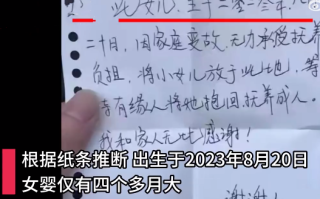 此女儿, 生于二零二三年八月
二十日, 因家庭变故, 无力承受抚养
负担, 将小女儿放于此地, 等
待有缘人将她抱回抚养成人。
我和家人无比感谢!
谢谢
根据纸条推断 出生于2023年8月20日
女婴仅有四个多月大